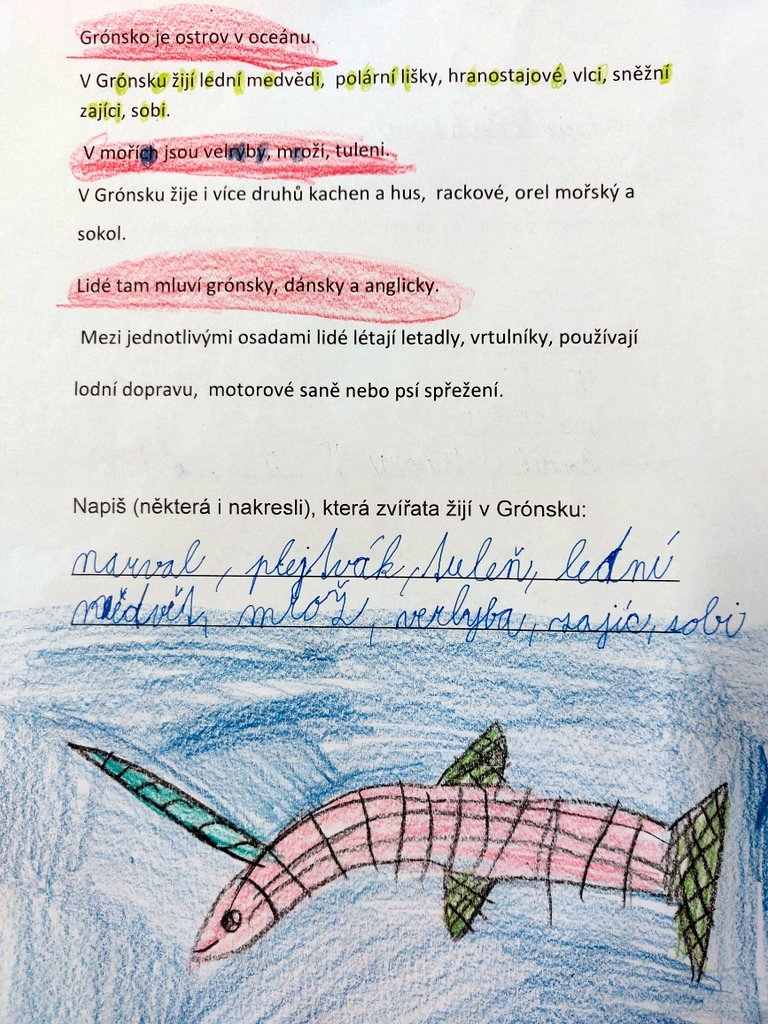 Grónsko je ostrov v oceánu.
V Grónsku žijí lední medvědi, polární lišky, hranostajové, vlci, sněžní
zajíci, sobi.
V mořích jsou velryby, mroží, tuleni.
V Grónsku žije i více druhů kachen a hus, rackové, orel mořský a
sokol.
Lidé tam mluví grónsky, dánsky a anglicky.
Mezi jednotlivými osadami lidé létají letadly, vrtulníky, používají
lodní dopravu, motorové saně nebo psí spřežení.
Napiš (některá i nakresli), která zvířata žijí v Grónsku:
narval, plejtvák, tuleň, lední
mědvět, mrož, verlyba, zajíc, sobi